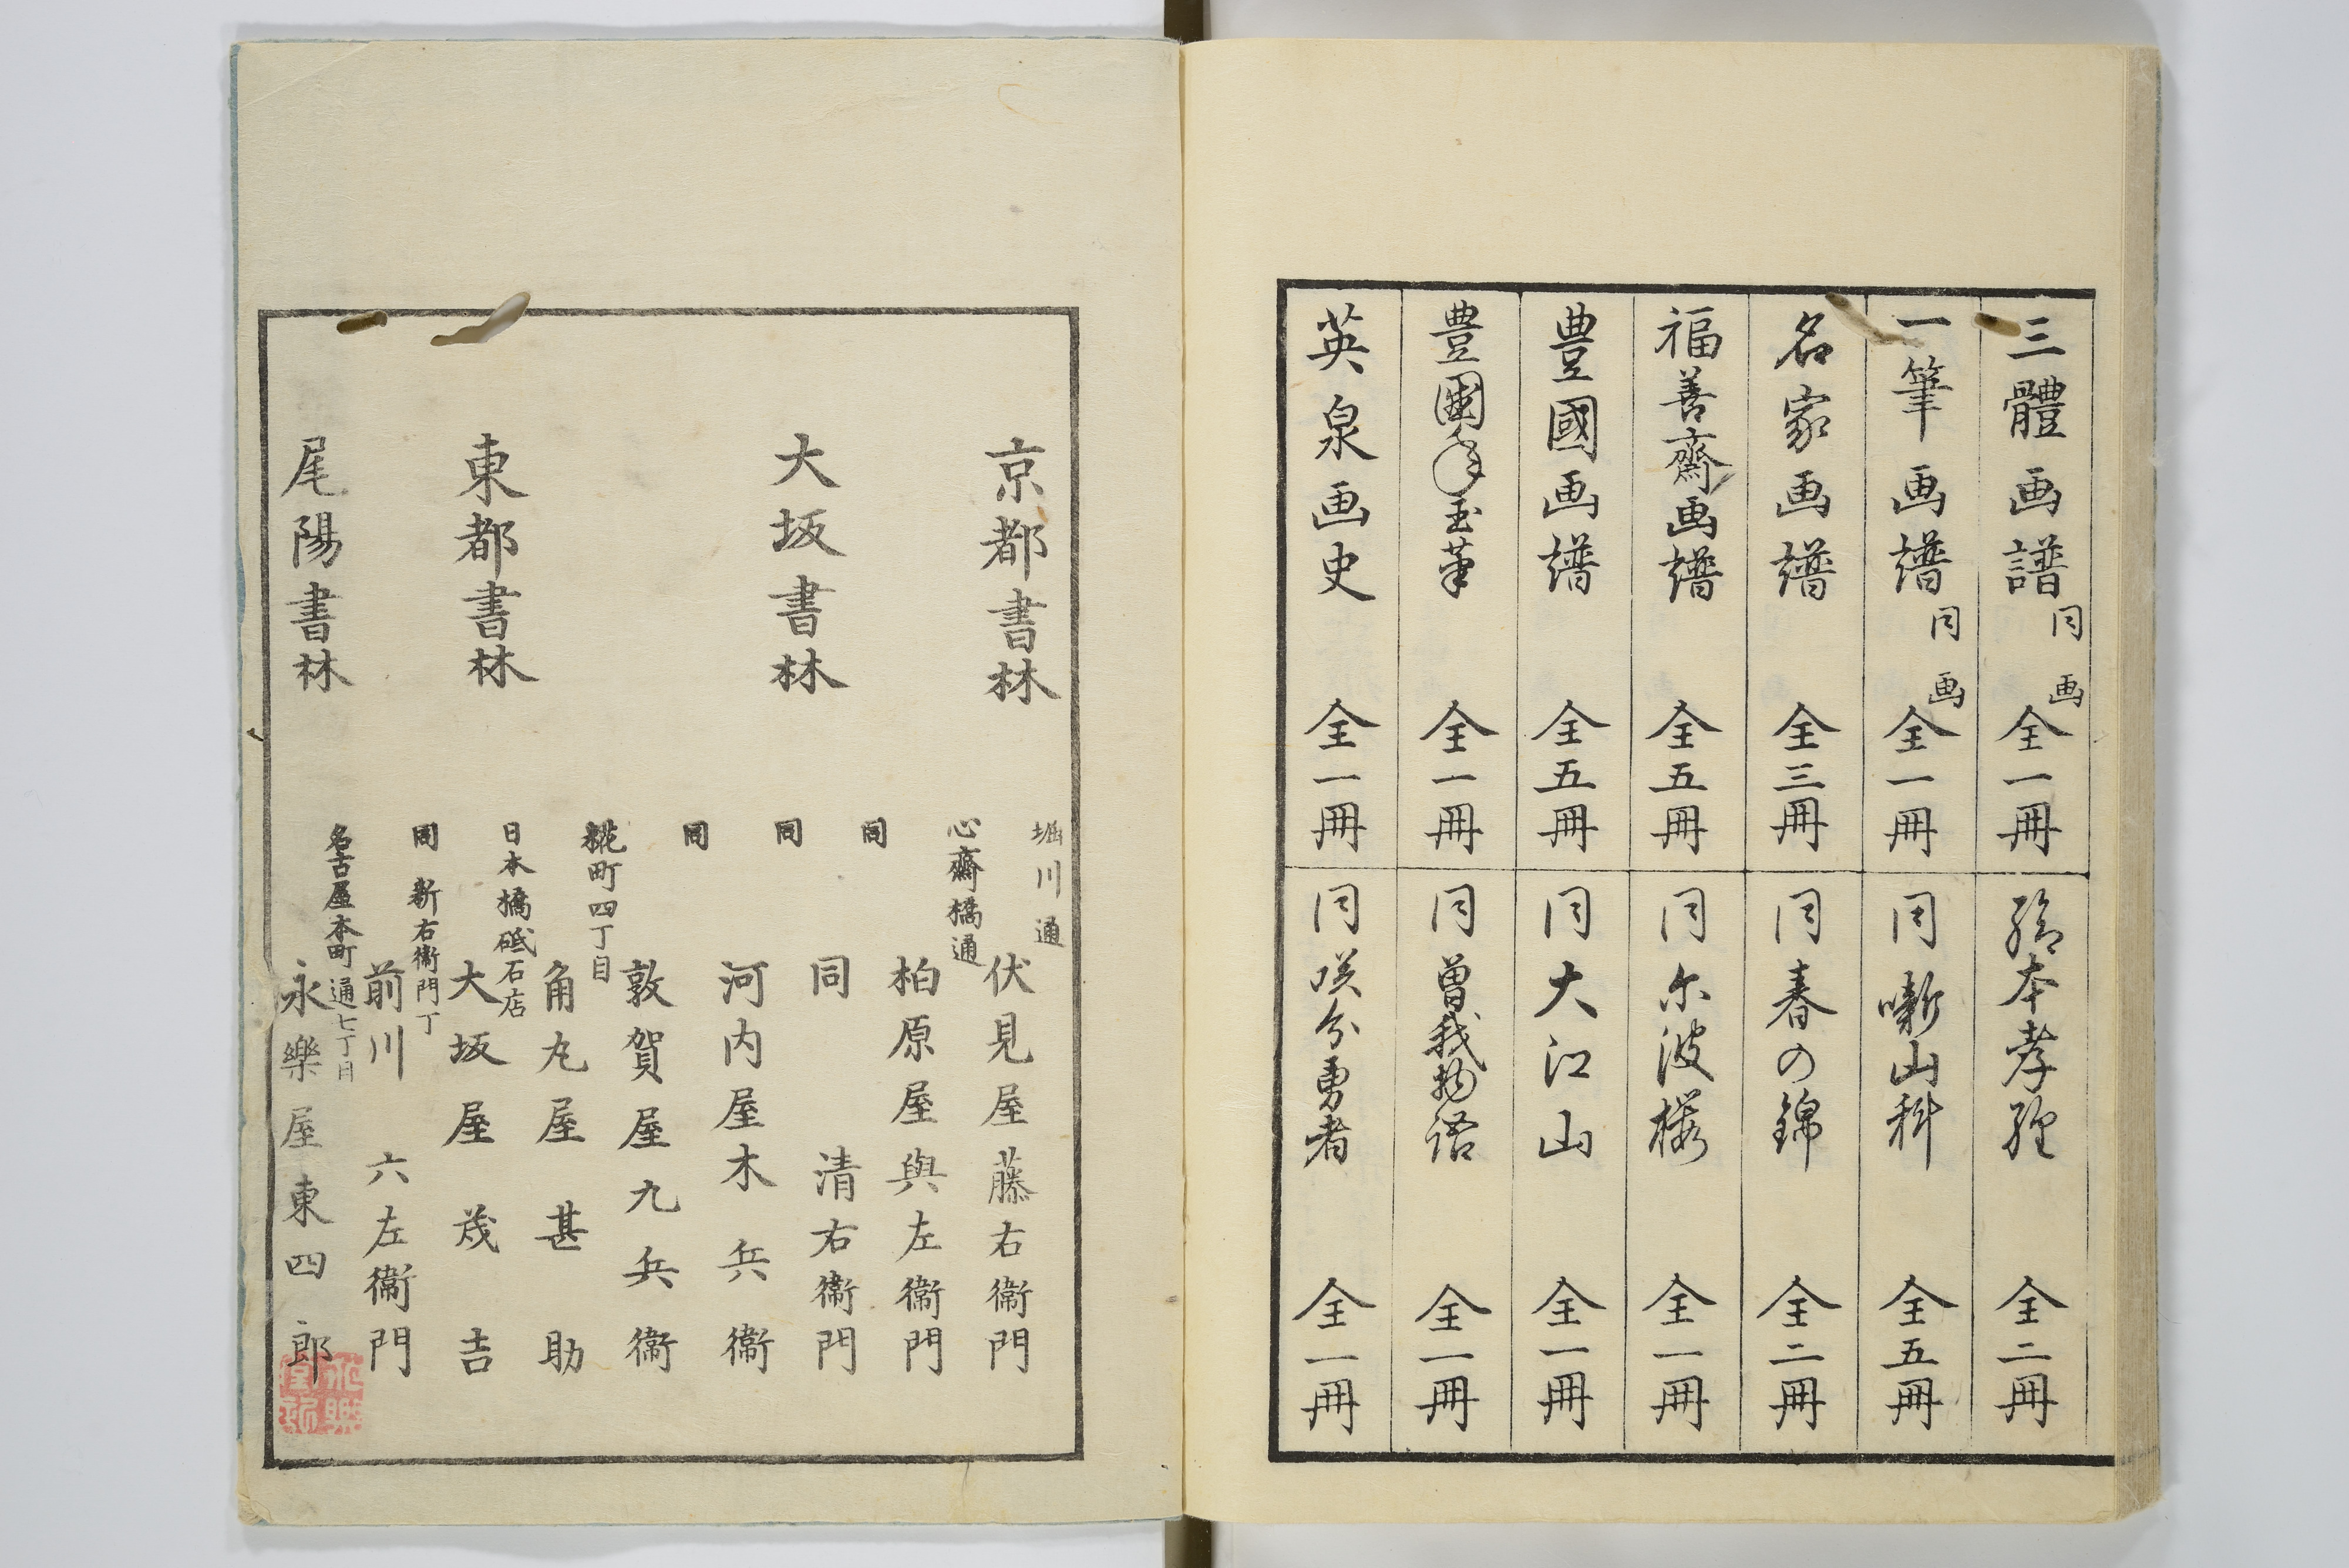 三體画譜 同画 全一冊
一筆画譜 同画 全一冊
名家画譜 全三冊
福善齋画譜 全五冊
豊國画譜 全五冊
豊國年玉筆 全一冊
英泉画史 全一冊
絵本孝経 全二冊
同 噺山科 全五冊
同 春の錦 全二冊
同 尓波桜 全一冊
同 大江山 全一冊
同 曽我物語 全一冊
同 咲分勇者 全一冊
京都書林
堀川通 伏見屋藤右衞門
大坂書林
心齋橋通 柏原屋與左衞門
同 同 清右衞門
同 河内屋木兵衞
同 敦賀屋九兵衞
東都書林
糀町四丁目 角丸屋甚助
日本橋砥石店 大坂屋茂吉
同 新右衞門丁 前川六左衞門
尾陽書林
名古屋本町通七丁目 永樂屋東四郎